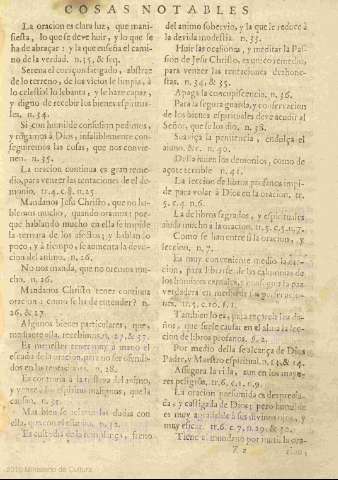 COSAS NOTABLES
La oracion es clara luz, que mani-
fiesta, lo que se deve huir, y lo que se
ha de abraçar : y la que enseña el cami-
no de la verdad. n. 35, & seq.
Serena el coraçon sergado, abstrae
de lo terreno, de los vicios le limpia, à
lo celestial lo lebanta, y le hace capaz,
y digno de recebir los bienes espiritua-
les. n. 34.
Si con humilde confession pedimos,
y rogamos à Dios, infaliblemente con-
seguiremos las cosas, que nos convie-
nen. n. 35.
La oracion continua es gran reme-
dio, para vencer las tentaciones de el de-
monio. tr. 4. c. 8. n. 25.
Mandanos Jesu Christo, que no ha-
blemos mucho, quando oramos: por-
que hablando mucho en ella se impide
la ternura de los afectos; y hablando
poco, y à tiempo, se aumenta la devo-
cion del animo. n. 26.
No nos manda, que no oremos mu-
cho. n. 26.
Mandanos Christo tener continua
oracion: como se ha de entender? n.
26. & 27.
Algunos bienes particulares, que,
mediante ella, recebimos. n. 27. & 37.
Es menester tener muy à mano el
escudo de la oracion, para no ser ofendi-
dos en las tentaciones. n. 28.
Es contraria à la tristeza del animo,
y vence los espiritus malignos, que la
causan. n. 31.
Mas bien se
las dudas con
ella, que con el estudio. n. 32.
Es custodia de la templança, freno
del animo sobervio, y la que le reduce à
la devida modestia. n. 33.
Huir las ocasiones, y meditar la Pas-
sion de Jesu Christo, es unico remedio,
para vencer las tentaciones deshones-
tas. n. 34. & 35.
Apaga la concupiscencia. n. 36.
Para la segura guarda, y conservacion
de los bienes espirituales deve acudir al
Señor, que se los dio. n. 38.
Suaviça la penitencia, endulça el
animo. &c. n. 40.
De ella huien los demonios, como de
açote terrible. n. 41.
La leccion de libros profanos impi-
de para volar à Dios en la oracion. tr.
5. c. 4. n. 6.
La de libros sagrados, y espirituales
ayuda mucho à la oracion. tr. 5. c. 5. n. 7.
Como se han entre si la oracion, y
leccion. n. 7.
Es muy conveniente medio la ora-
cion, para librarse de las calumnias de
los hombres carnales, y conseguir la paz
verdadera en
tr. 4. c. 10. §. 1.
Tambien lo es, para
los da-
ños, que suele causar en el alma la lec-
cion de libros profanos. §. 2.
Por medio de ella se alcança de Dios
Padre, y Maestro espiritual. n. 13. & 14.
Assegura la vida, aun en los mayo-
res peligros. tr. 6. c. 1. n. 9.
La oracion presumida es desprecia-
da, y castigada de Dios; pero humilde
es muy agradable à sus divinos ojos, y
muy eficaz. tr. 6. c. 7. n. 29. & 30.
Tiene al mundo por
la ora-
Z 2
cion,
2010 Ministerio de Cultura